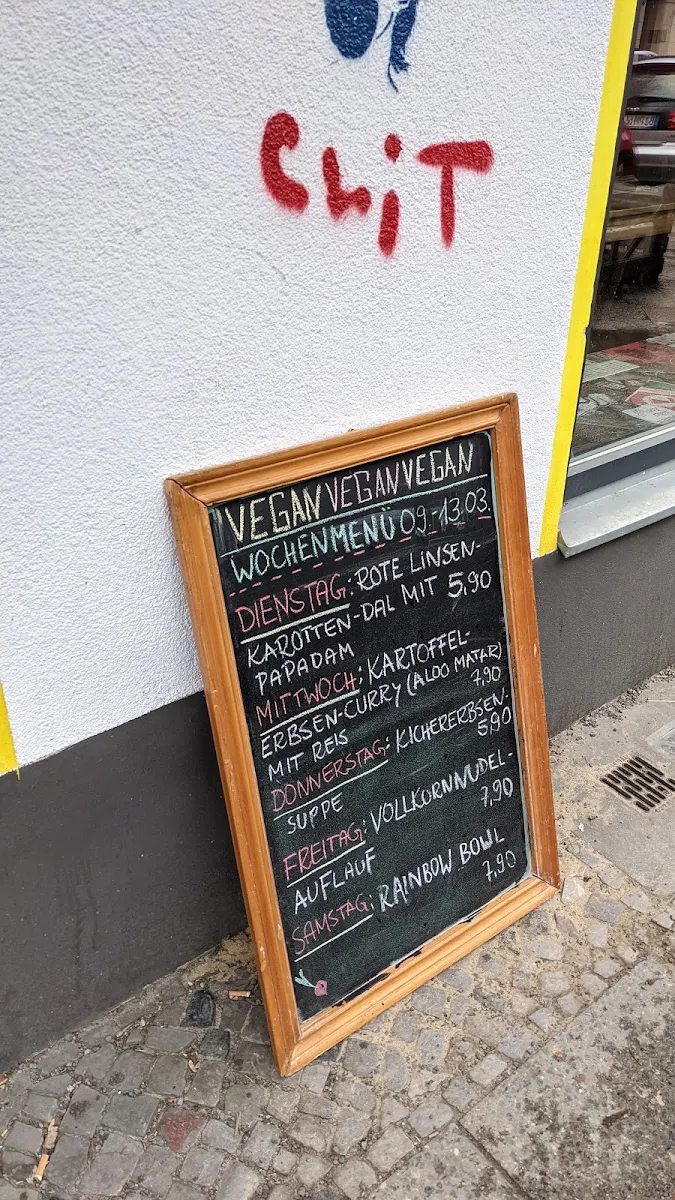 CLiT
VEGAN VEGAN VEGAN
WOCHENMENÜ 09.-13.03.
DIENSTAG: ROTE LINSEN-
KAROTTEN-DAL MIT 5,90
PAPADAM
MITTWOCH: KARTOFFEL-
ERBSEN-CURRY (ALOO MATAR)
MIT REIS 7,90
DONNERSTAG: KICHERERBSEN-
SUPPE 5,90
FREITAG: VOLLKORNNUDEL-
AUFLAUF 7,90
SAMSTAG: RAINBOW BOWL
7,90